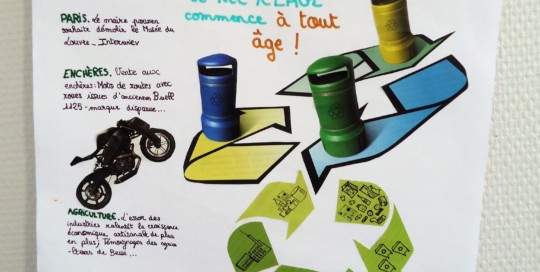 le RECYCLAGE
commence à tout
âge !
PARIS. Le maire parisien
souhaite démolir le Musée du
Louvre - Interview
ENCHÈRES. Vente aux
enchères: Mots de routes avec
roues issues d'anciennes Buell
1125 - marque disparue...
AGRICULTURE. L'essor des
industries ralentit la croissance
économique artisanale de plus
en plus; Témoignages des agricu-